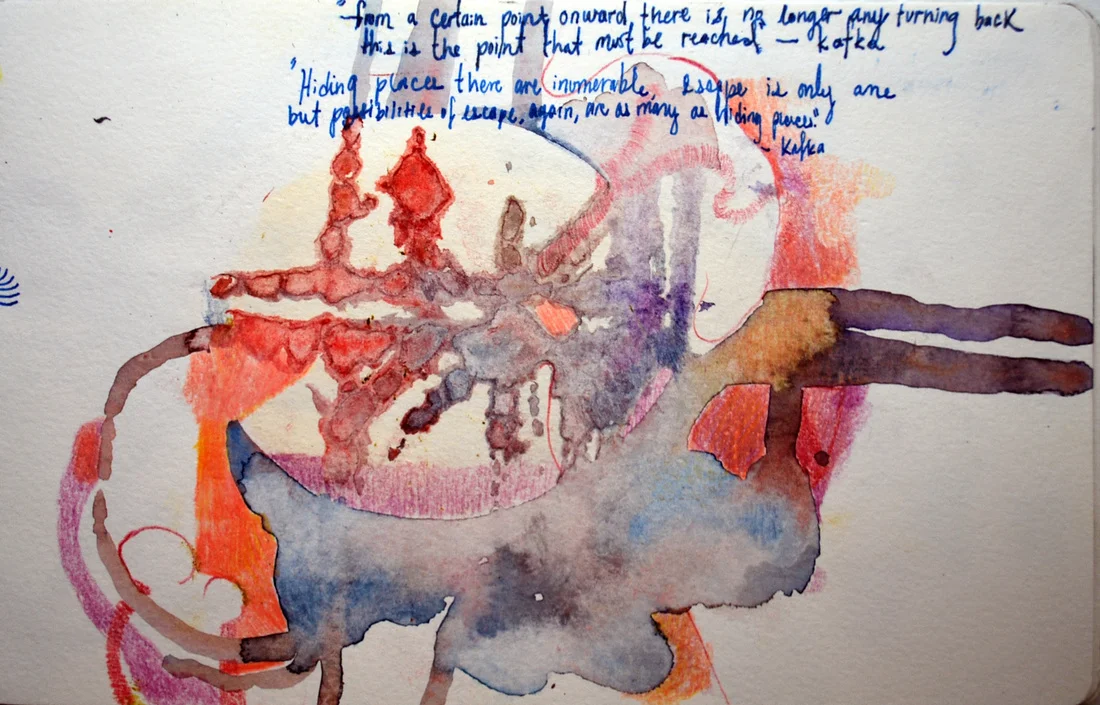 "From a certain point onward, there is no longer any turning back
this is the point that must be reached" — Kafka
"Hiding places there are inumerable, Escape is only one
but possibilities of escape, again, are as many as hiding places."
- Kafka